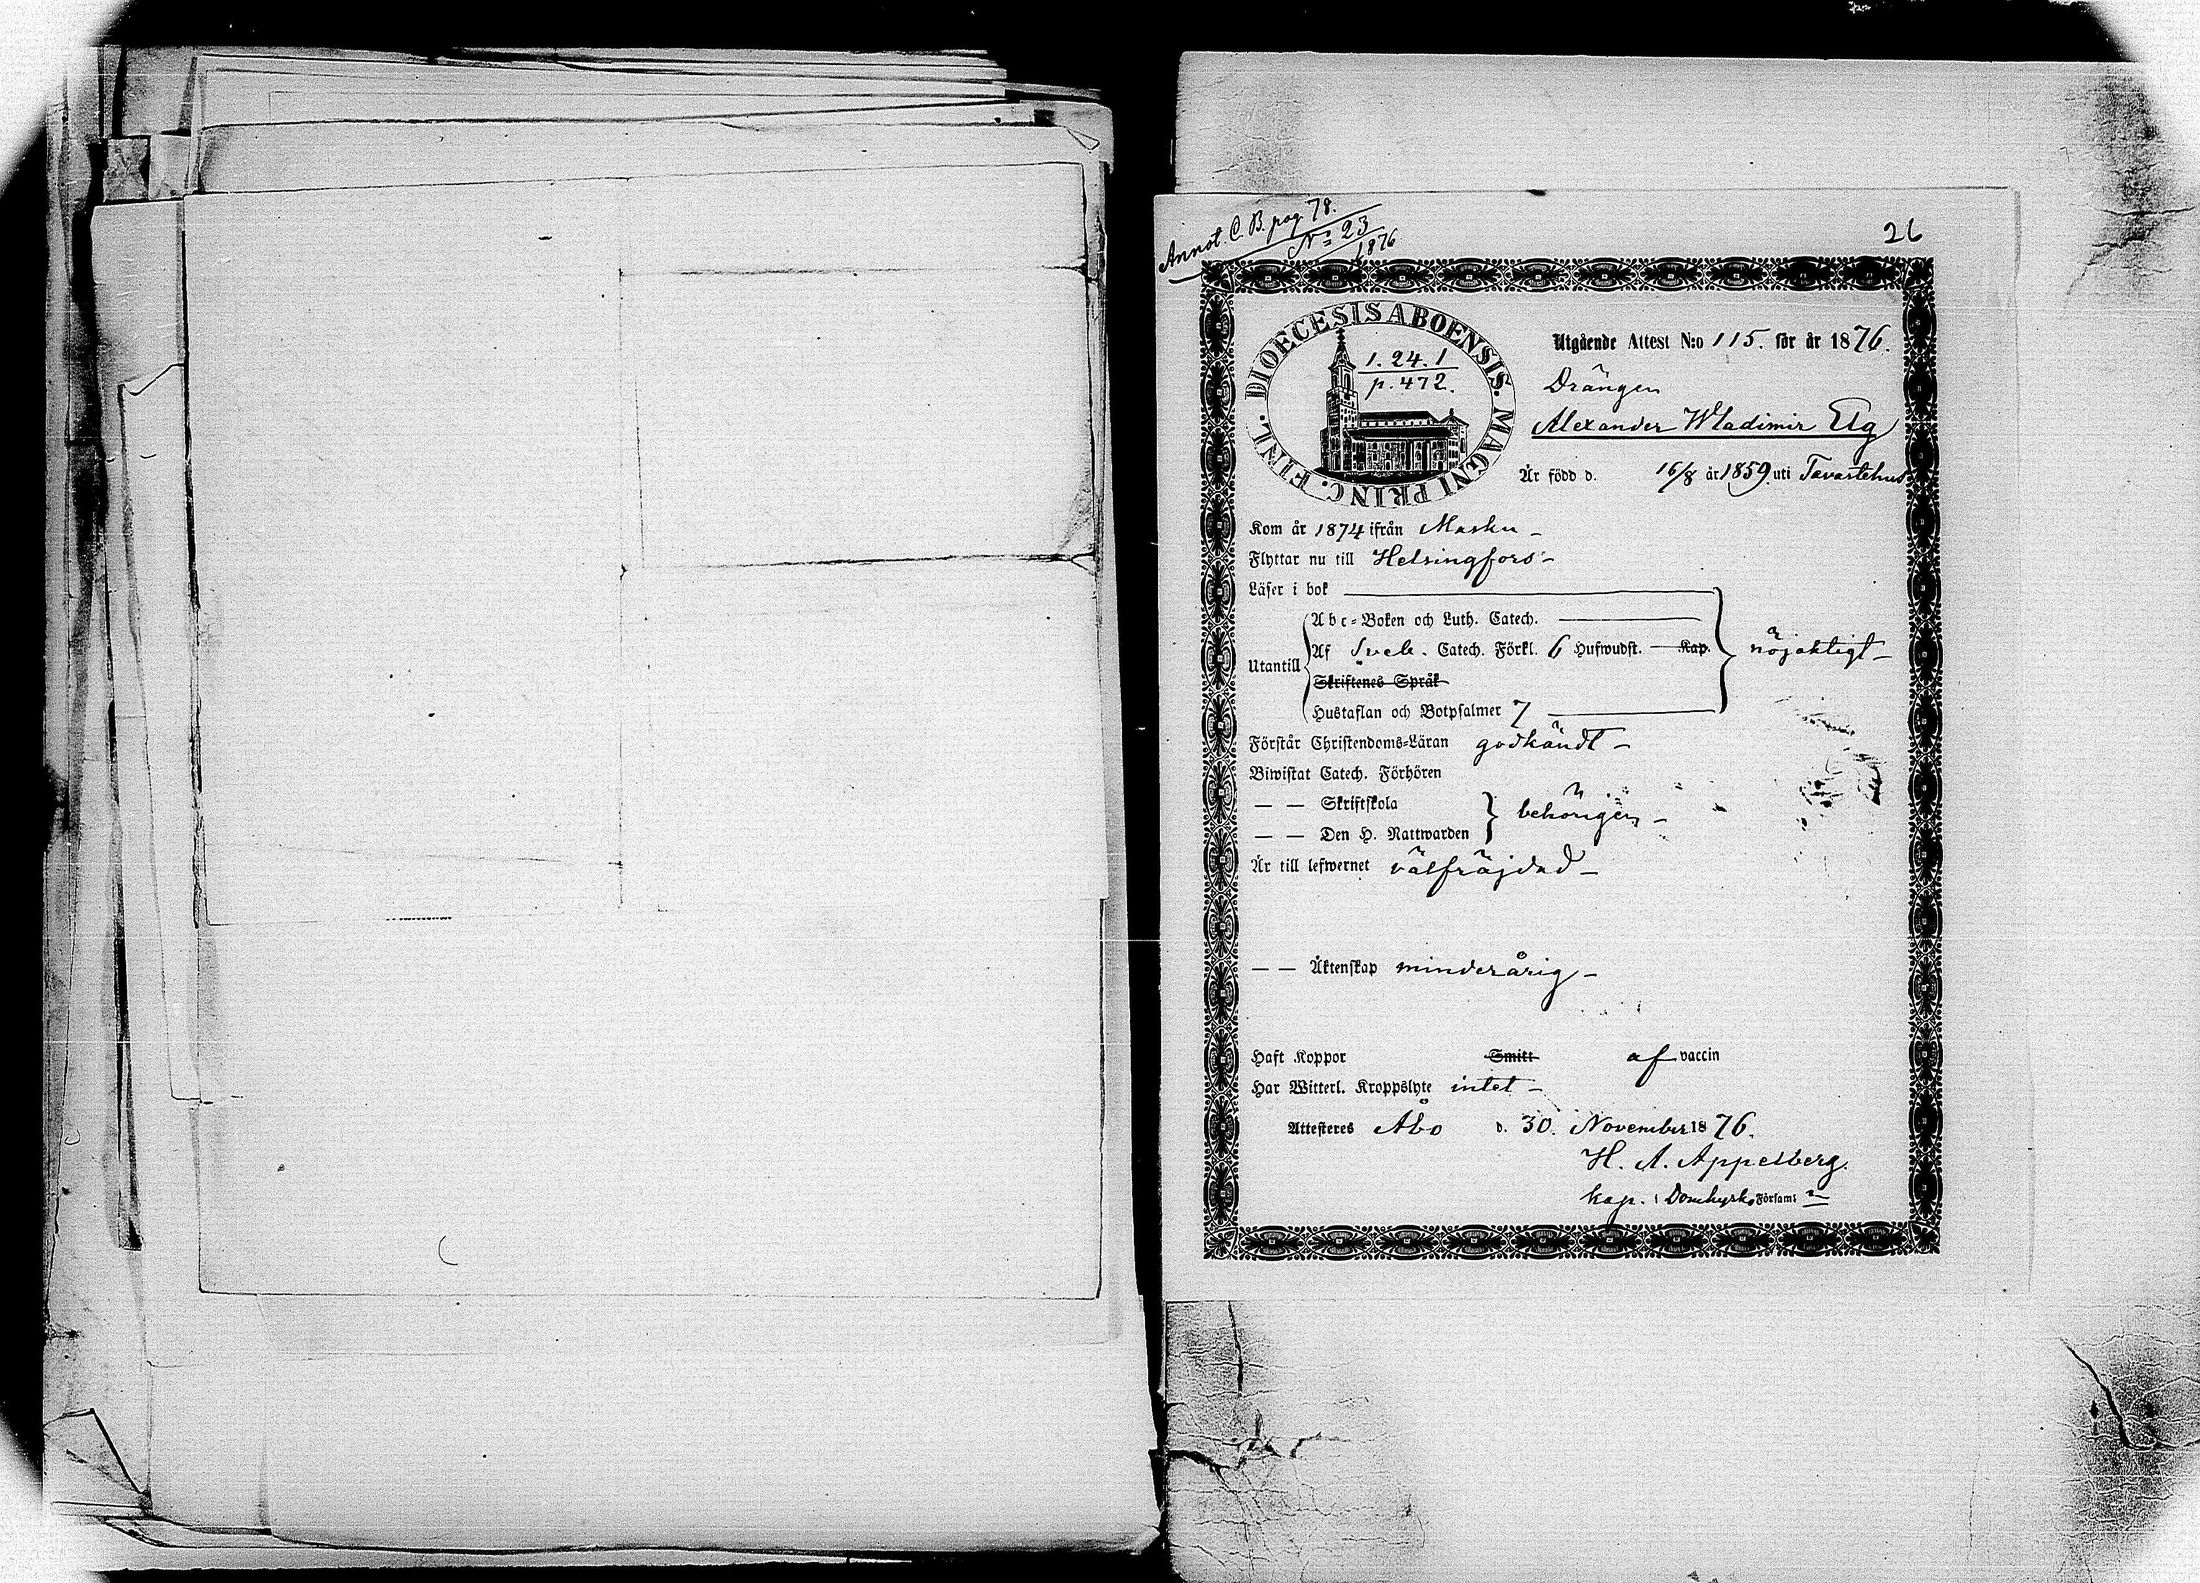 Annot. C. B. pag 78.
No 23
1876
26
DIOECESIS ABOENSIS. MAGNI PRINC. FINL.
1. 24. 1
p. 472.
Utgående Attest N:o 115. för år 1876.
Drängen
Alexander Wladimir Elg
Är född d. 16/8 år 1859 uti Tavastehus
Kom år 1874 ifrån Masku –
Flyttar nu till Helsingfors –
Läser i bok
Abc-Boken och Luth. Catech.
Utantill Af Sveb. Catech. Förkl. 6 Hufwudst. Kap. nöjaktigt –
Skriftenes Språk
Hustaflan och Botpsalmer 7
Förstår Christendoms-Läran godkändt –
Biwistat Catech. Förhören
— — Skriftskola
behörigen –
— — Den H. Nattwarden
Är till lefwernet välfräjdad –
— — Äktenskap minderårig –
Haft Koppor Smitt af vaccin
Har Witterl. Kroppslyte intet –
Attesteres Åbo d. 30. November 1876.
H. A. Appelberg.
kap. i Domkyrko Församl